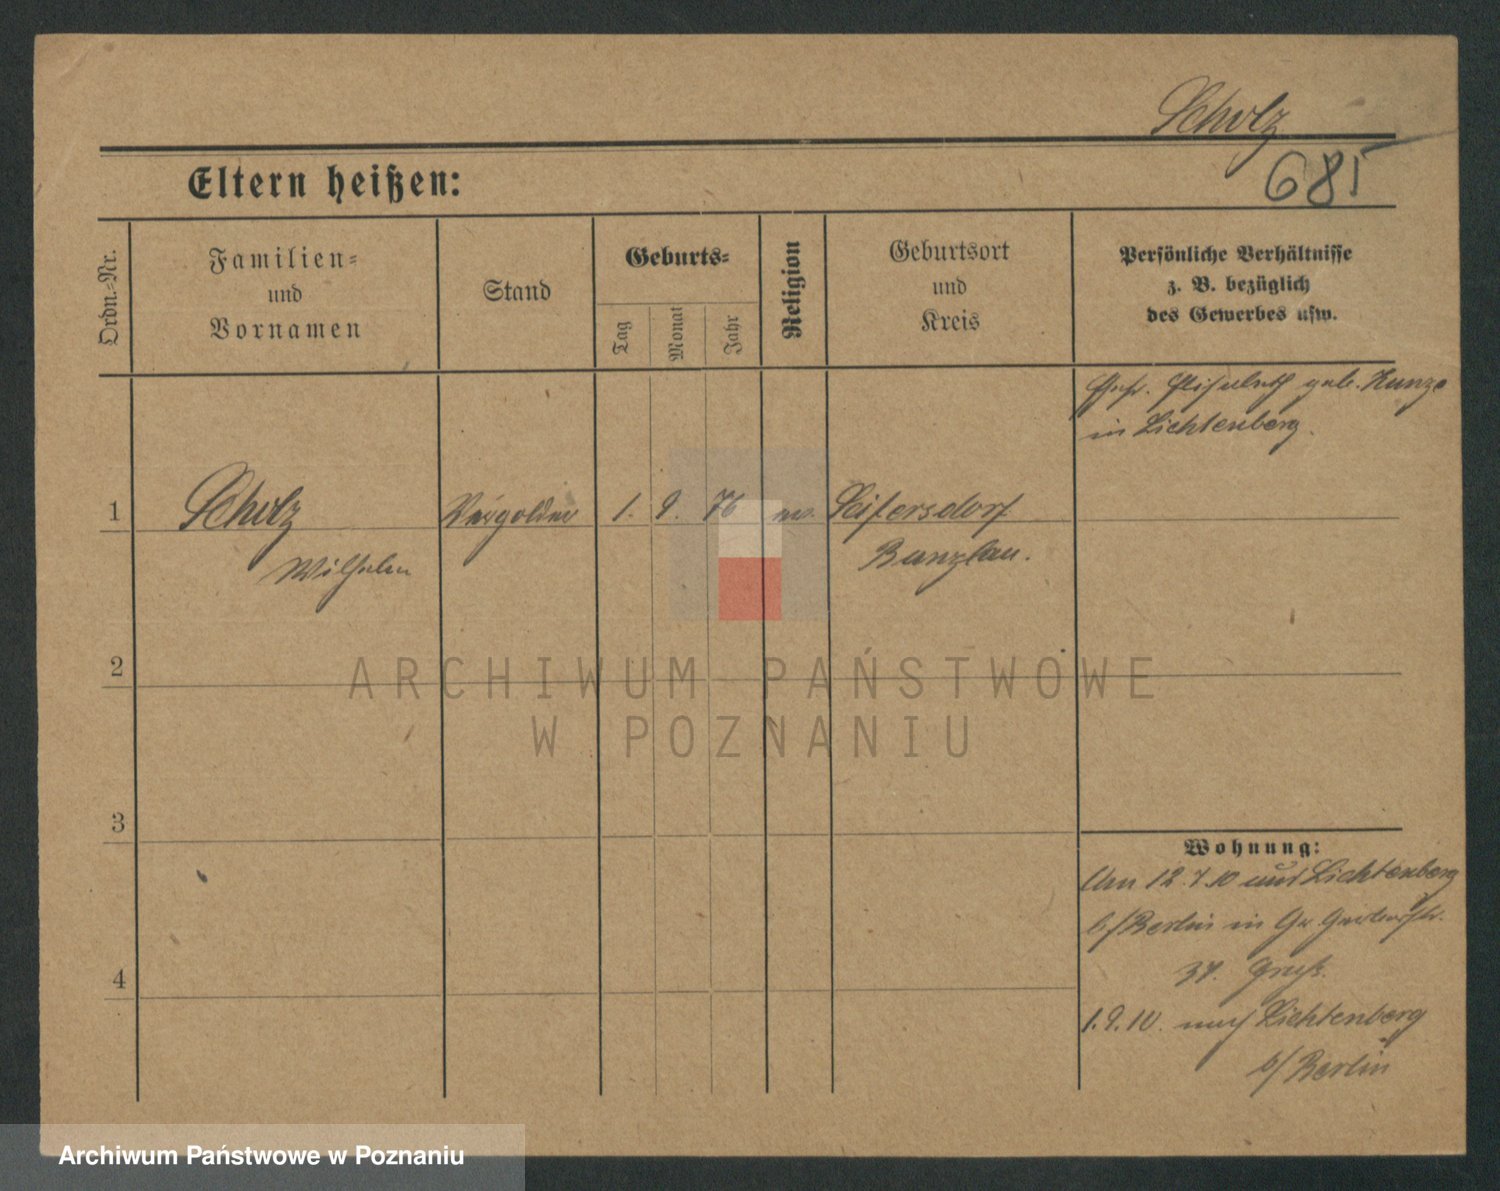 Scholz
Eltern heißen:
685
Ordn.-Nr.
Familien-
und
Vornamen
Stand
Geburts-
Tag
Monat
Jahr
Religion
Geburtsort
und
Kreis
Persönliche Verhältnisse
z. B. bezüglich
des Gewerbes usw.
Ehefr. Elisabeth geb. Kunze
in Lichtenberg.
1
Scholz
Wilhelm
Vergolder
1. 9. 76
ev.
Seifersdorf
Bunzlau.
2
3
4
Wohnung:
Am 12.7.10 aus Lichtenberg
b/Berlin in Gr. Gerberstr.
37.
1.9.10. nach Lichtenberg
b/Berlin
ARCHIWUM PAŃSTWOWE
W POZNANIU
Archiwum Państwowe w Poznaniu